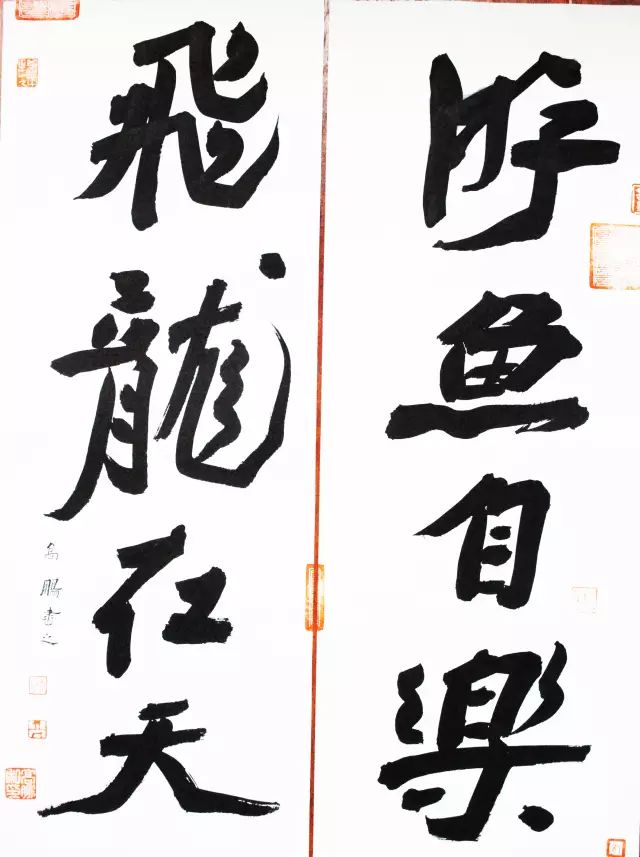 游魚自樂
飛龍在天
鵬書之